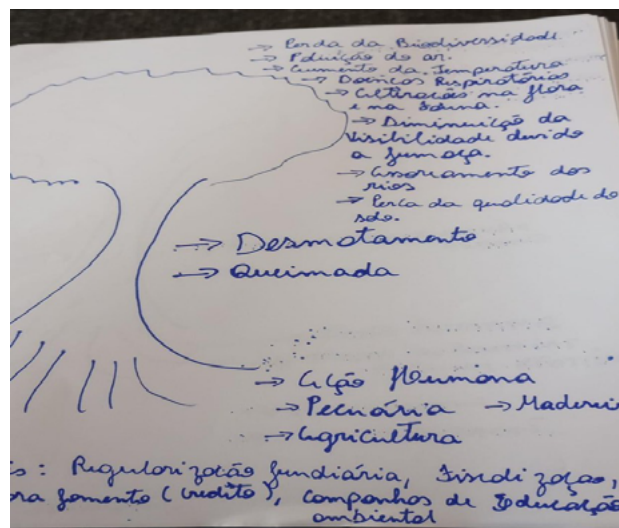 → Perda da Biodiverssidade
→ Poluição do ar.
→ Aumento da Temperatura
→ Doenças Respiratórias
→ Alterações na flora
e na fauna.
→ Diminuição da
Visibilidade devido
a fumaça.
→ Assoreamento dos
rios
→ Perca da qualidade do
solo.
→ Desmatamento
→ Queimada
→ Ação Humana
→ Pecuária → Madeirei
→ Agricultura
s: Regularização fundiária, Fiscalização,
ra fomento (credito), companhas de Educação
ambiental